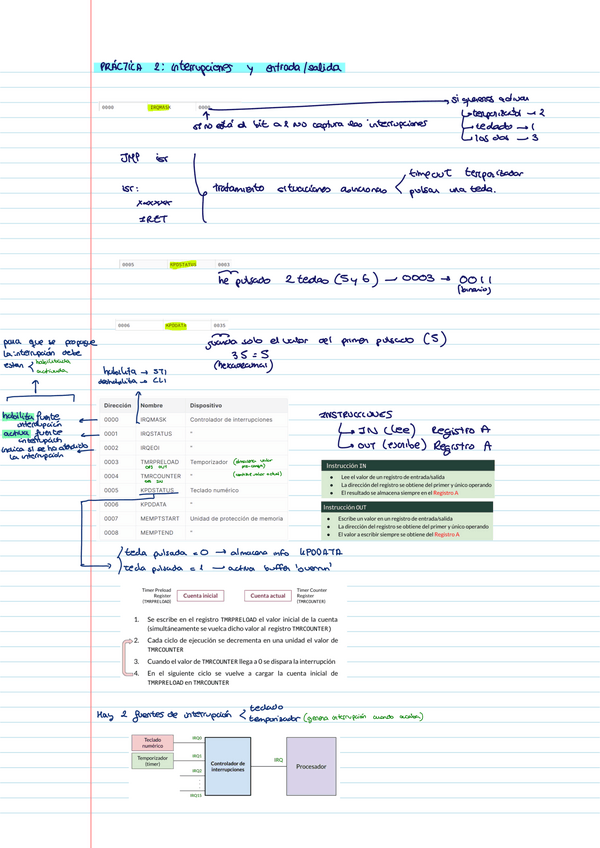 PRÁCTICA 2: interrupciones y entrada/salida
0000 IRQMASK 0000
si queremos activar
temporizador → 2
teclado → 1
los dos → 3
si no está el bit a 1 NO captura las interrupciones
JMP isr
isr:
xxxxxx
IRET
tratamiento situaciones asíncronas
timeout temporizador
pulsar una tecla.
0005 KPDSTATUS 0003
he pulsado 2 teclas (5 y 6) → 0003 → 0011
(binario)
0006 KPDDATA 0035
guarda solo el valor del primer pulsado (5)
35 = 5
(hexadecimal)
para que se propague
la interrupción debe
estar habilitada
activada
habilita → STI
deshabilita → CLI
habilita fuente
interrupción
activa fuente
interrupción
indica si se ha atendido
la interrupción
Dirección Nombre Dispositivo
0000 IRQMASK Controlador de interrupciones
0001 IRQSTATUS "
0002 IRQEOI "
0003 TMRPRELOAD Temporizador
0004 TMRCOUNTER "
0005 KPDSTATUS Teclado numérico
0006 KPDDATA "
0007 MEMPTSTART Unidad de protección de memoria
0008 MEMPTEND "
INSTRUCCIONES
IN (lee) Registro A
OUT (escribe) Registro A
Instrucción IN
• Lee el valor de un registro de entrada/salida
• La dirección del registro se obtiene del primer y único operando
• El resultado se almacena siempre en el Registro A
Instrucción OUT
• Escribe un valor en un registro de entrada/salida
• La dirección del registro se obtiene del primer y único operando
• El valor a escribir siempre se obtiene del Registro A
tecla pulsada = 0 → almacena info KPDDATA
tecla pulsada = 1 → activa buffer 'overrun'
Timer Preload
Register
(TMRPRELOAD)
Cuenta inicial
Cuenta actual
Timer Counter
Register
(TMRCOUNTER)
1. Se escribe en el registro TMRPRELOAD el valor inicial de la cuenta
(simultáneamente se vuelca dicho valor al registro TMRCOUNTER)
2. Cada ciclo de ejecución se decrementa en una unidad el valor de
TMRCOUNTER
3. Cuando el valor de TMRCOUNTER llega a 0 se dispara la interrupción
4. En el siguiente ciclo se vuelve a cargar la cuenta inicial de
TMRPRELOAD en TMRCOUNTER
Hay 2 fuentes de interrupción
teclado
temporizador (genera interrupción cuando acaba)
Teclado
numérico
Temporizador
(timer)
IRQ0
IRQ1
IRQ2
IRQ15
Controlador de
interrupciones
IRQ
Procesador